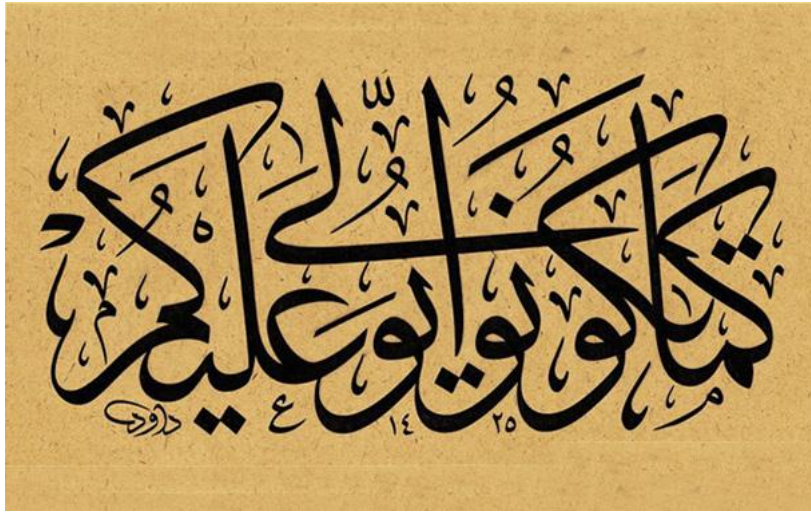 كَمَا تَكُونُوا يُوَلَّىٰ عَلَيْكُمْ
داود ١٤٢٥